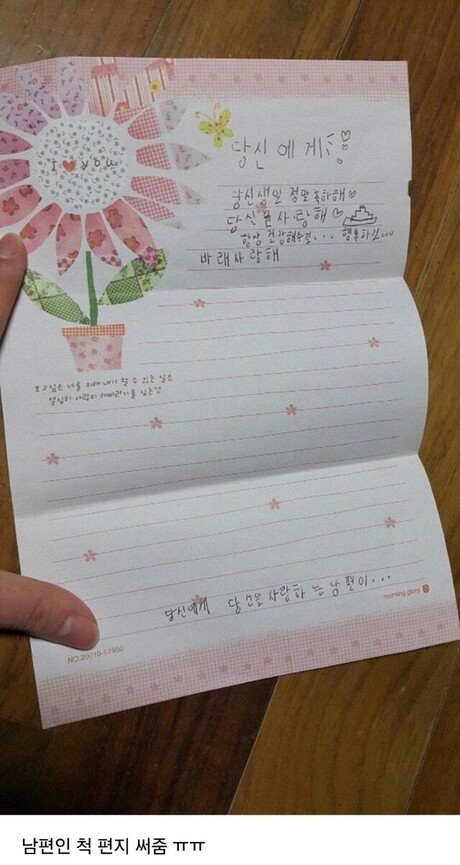 I ♥ you
당신에게♡
당신생일 정말 축하해♡
당신을 사랑해♡
항상 건강해주길... 행복하길
바래 사랑해
보고싶은 너를 위해 내가 할 수 있는 일은
당신에게 당신을 사랑하는 남편이...
morning glory
NO.20010-57950
남편인 척 편지 써줌 ㅠㅠ